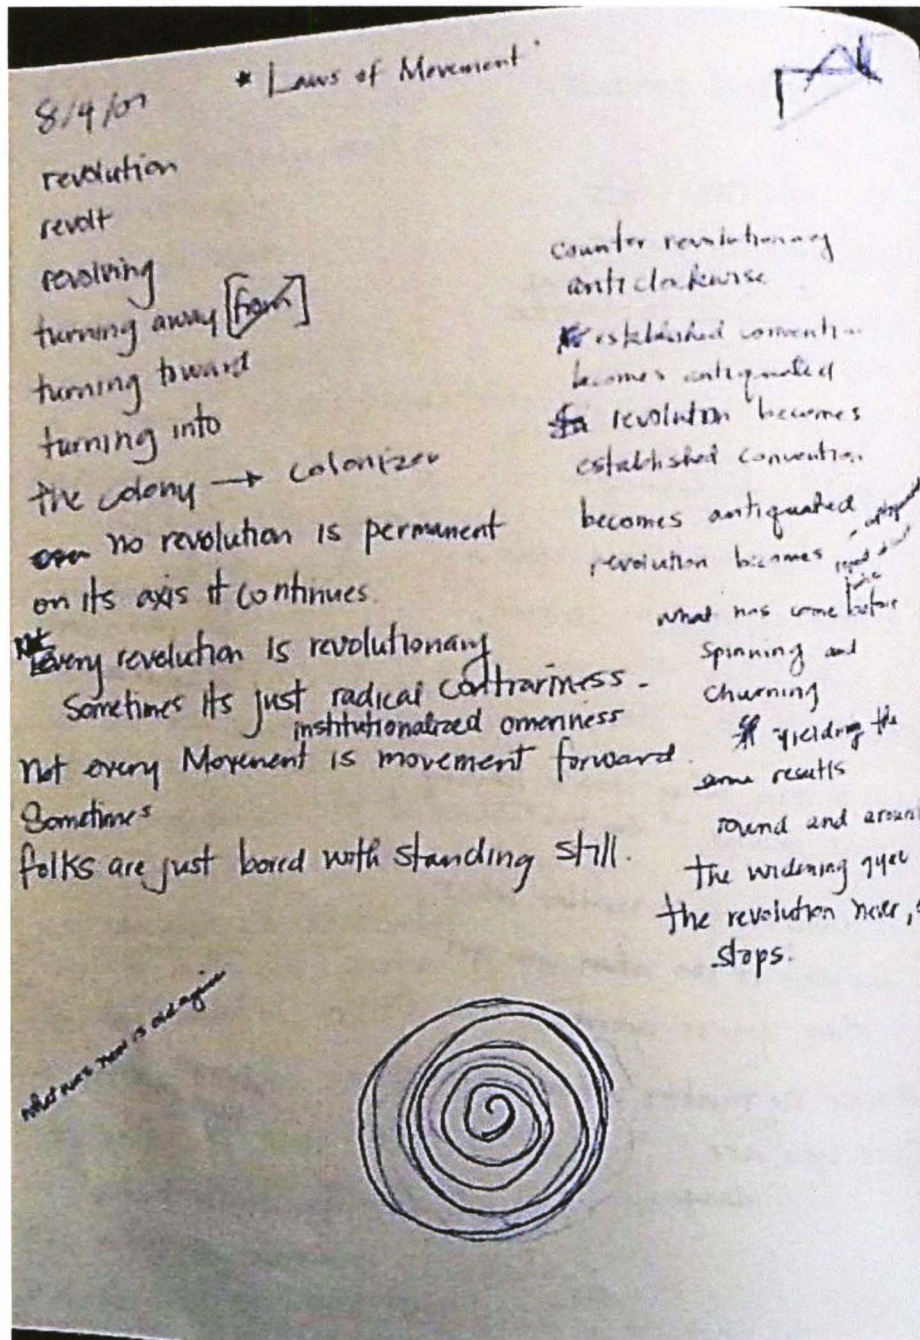 * Laws of Movement
8/9/07
revolution
revolt
revolving
turning away [from]
turning toward
turning into
the colony → colonizer
no revolution is permanent
on its axis it continues.
Not Every revolution is revolutionary
Sometimes its just radical contrariness.
institutionalized omenness
Not every Movement is movement forward.
Sometimes
folks are just bored with standing still.
what was new is old again
counter revolutionary
anticlockwise
established conventio
becomes antiquated
revolution becomes
established convention
becomes antiquated
revolution becomes
what has come before
spinning and
churning
yielding the
same results
round and aroun
the widening gyre
the revolution never,
stops.